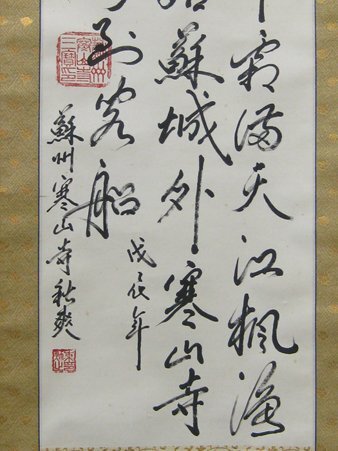 霜满天江枫渔
蘇城外寒山寺
到客船
戊辰年
蘇州寒山寺秋爽